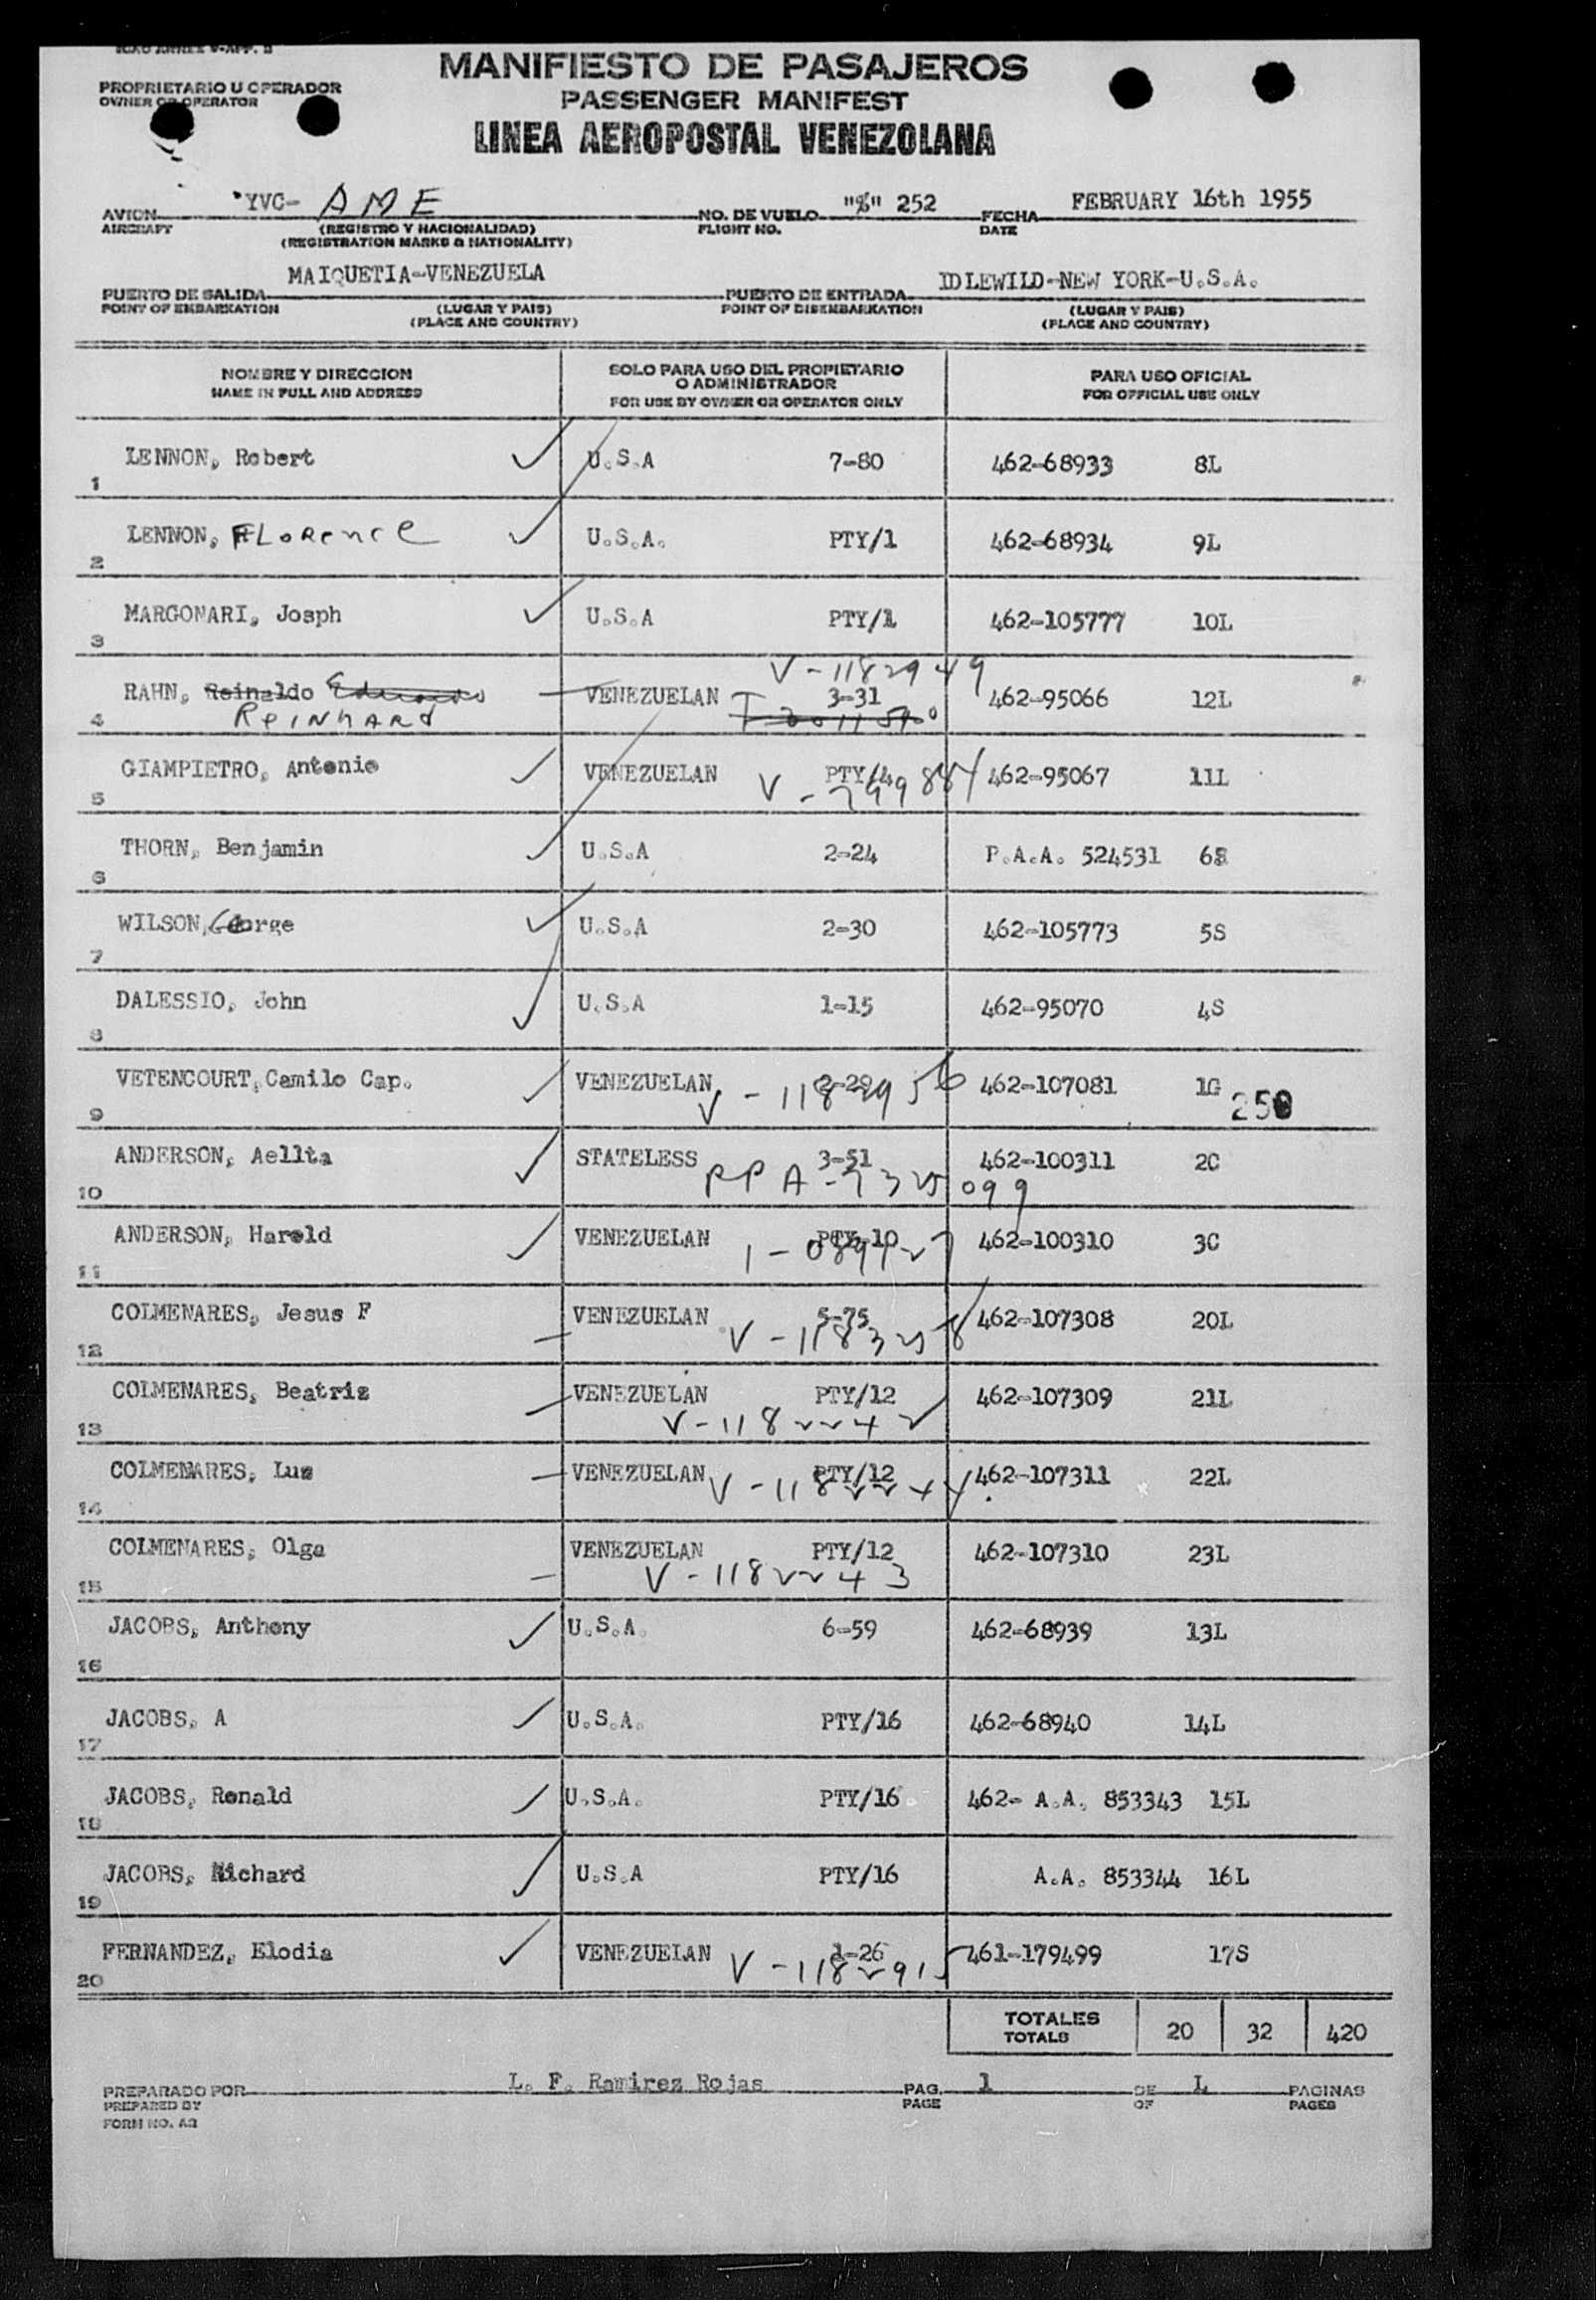 ICAO ANNEX 9-APP. B
MANIFIESTO DE PASAJEROS
PROPRIETARIO U OPERADOR
OWNER OR OPERATOR
PASSENGER MANIFEST
LINEA AEROPOSTAL VENEZOLANA
AVION YVC- AME NO. DE VUELO 252 FECHA FEBRUARY 16th 1955
AIRCRAFT (REGISTRO Y NACIONALIDAD) FLIGHT NO. DATE
(REGISTRATION MARKS & NATIONALITY)
PUERTO DE SALIDA MAIQUETIA-VENEZUELA PUERTO DE ENTRADA IDLEWILD-NEW YORK-U.S.A.
POINT OF EMBARKATION (LUGAR Y PAIS) POINT OF DISEMBARKATION (LUGAR Y PAIS)
(PLACE AND COUNTRY) (PLACE AND COUNTRY)
NOMBRE Y DIRECCION SOLO PARA USO DEL PROPIETARIO O ADMINISTRADOR PARA USO OFICIAL
NAME IN FULL AND ADDRESS FOR USE BY OWNER OR OPERATOR ONLY FOR OFFICIAL USE ONLY
1 LENNON, Robert U.S.A 7-80 462-68933 8L
2 LENNON, FLorence U.S.A. PTY/1 462-68934 9L
3 MARGONARI, Josph U.S.A PTY/1 462-105777 10L
V-1182949
4 RAHN, Reinaldo Eduardo VENEZUELAN 3-31 462-95066 12L
Reinhard
5 GIAMPIETRO, Antonio VENEZUELAN PTY/4 462-95067 11L
6 THORN, Benjamin U.S.A 2-24 P.A.A. 524531
7 WILSON, George U.S.A 2-30 462-105773 5S
8 DALESSIO, John U.S.A 1-15 462-95070 4S
9 VETENCOURT, Camilo Cap. VENEZUELAN 2-29 462-107081 1G
V-1182956 250
10 ANDERSON, Aellta STATELESS 3-51 462-100311 2C
11 ANDERSON, Harold VENEZUELAN PTY-10 462-100310 3C
12 COLMENARES, Jesus F VENEZUELAN 5-75 462-107308 20L
V-1183258
13 COLMENARES, Beatriz VENEZUELAN PTY/12 462-107309 21L
V-1182242
14 COLMENARES, Luz VENEZUELAN PTY/12 462-107311 22L
V-1182244
15 COLMENARES, Olga VENEZUELAN PTY/12 462-107310 23L
V-1182243
16 JACOBS, Anthony U.S.A. 6-59 462-68939 13L
17 JACOBS, A U.S.A. PTY/16 462-68940 14L
18 JACOBS, Ronald U.S.A. PTY/16 462- A.A. 853343 15L
19 JACOBS, Richard U.S.A PTY/16 A.A. 853344 16L
20 FERNANDEZ, Elodia VENEZUELAN 1-26 461-179499 17S
V-1182915
TOTALES 20 32 420
TOTALS
PREPARADO POR L. F. Ramirez Rojas PAG. 1 DE 1 PAGINAS
PREPARED BY PAGE OF PAGES
FORM NO. A2